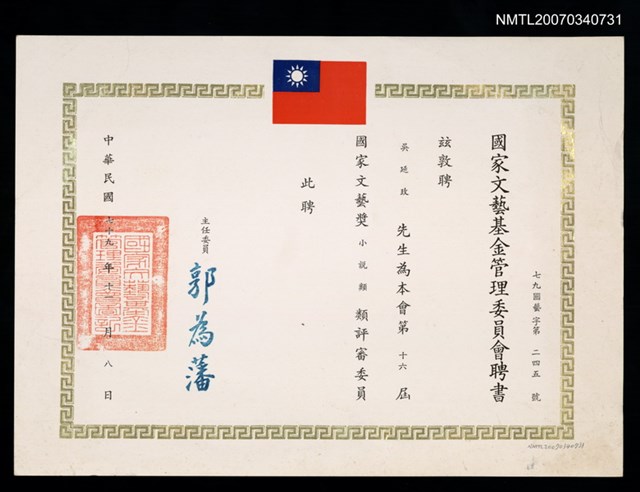 NMTL20070340731
國家文藝基金管理委員會聘書
七九國藝字第 二四五 號
茲敦聘
吳延玫 先生為本會第 十六 屆
國家文藝獎 小說類 類評審委員
此聘
主任委員
郭為藩
中華民國 七十九 年 十一 月 八 日
NMTL20070340731